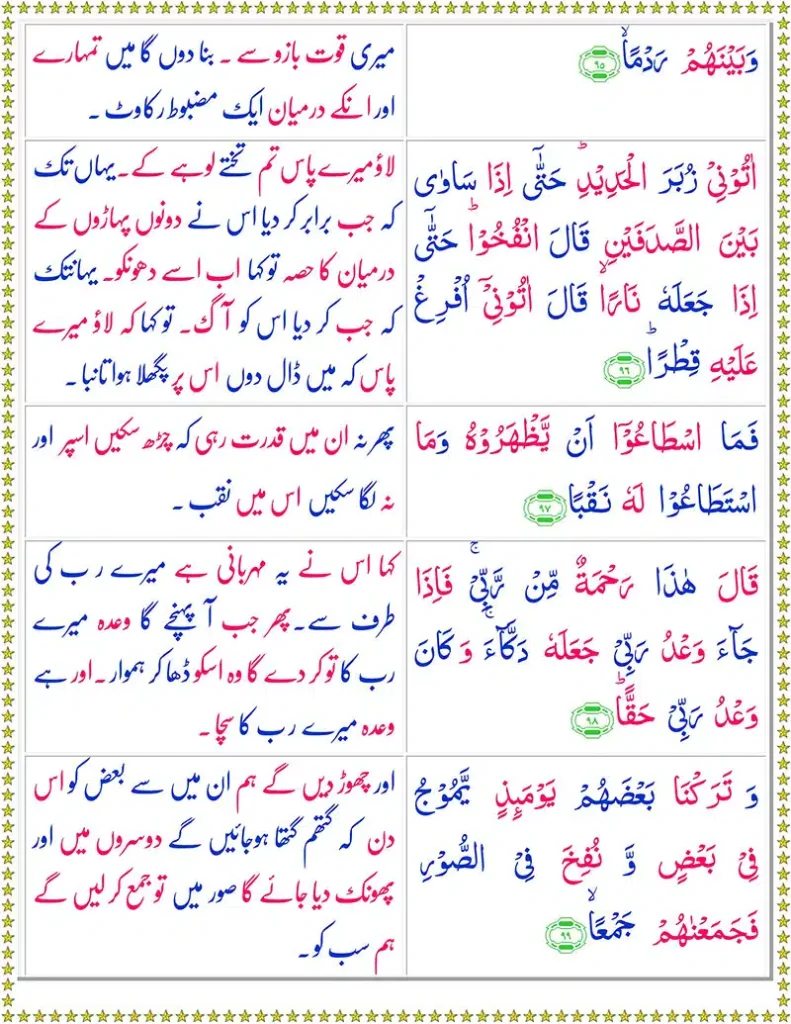 وَبَيْنَهُمْ رَدْمًاۙ ۹۵
میری قوت بازو سے ۔ بنا دوں گا میں تمہارے
اور انکے درمیان ایک مضبوط رکاوٹ ۔
اٰتُوْنِيْ زُبَرَ الْحَدِيْدِؕ حَتّٰٓى اِذَا سَاوٰى
بَيْنَ الصَّدَفَيْنِ قَالَ انْفُخُوْاؕ حَتّٰٓى
اِذَا جَعَلَهٗ نَارًاۙ قَالَ اٰتُوْنِيْۤ اُفْرِغْ
عَلَيْهِ قِطْرًاؕ ۹۶
لاؤ میرے پاس تم تختے لوہے کے۔ یہاں تک
کہ جب برابر کر دیا اس نے دونوں پہاڑوں کے
درمیان کا حصہ تو کہا اب اسے دھونکو۔ یہانتک
کہ جب کر دیا اس کو آگ۔ تو کہا کہ لاؤ میرے
پاس کہ میں ڈال دوں اس پر پگھلا ہوا تانبا۔
فَمَا اسْطَاعُوْۤا اَنْ يَّظْهَرُوْهُ وَمَا
اسْتَطَاعُوْا لَهٗ نَقْبًا ۹۷
پھر نہ ان میں قدرت رہی کہ چڑھ سکیں اسپر اور
نہ لگا سکیں اس میں نقب ۔
قَالَ هٰذَا رَحْمَةٌ مِّنْ رَّبِّيْۚ فَاِذَا
جَآءَ وَعْدُ رَبِّيْ جَعَلَهٗ دَكَّآءَۚ وَكَانَ
وَعْدُ رَبِّيْ حَقًّاؕ ۹۸
کہا اس نے یہ مہربانی ہے میرے رب کی
طرف سے۔ پھر جب آ پہنچے گا وعدہ میرے
رب کا تو کر دے گا وہ اسکو ڈھا کر ہموار ۔ اور ہے
وعدہ میرے رب کا سچا ۔
وَ تَرَكْنَا بَعْضَهُمْ يَوْمَئِذٍ يَّمُوْجُ
فِيْ بَعْضٍ وَّ نُفِخَ فِي الصُّوْرِ
فَجَمَعْنٰهُمْ جَمْعًاۙ ۹۹
اور چھوڑ دیں گے ہم ان میں سے بعض کو اس
دن کہ گتھم گتھا ہوجائیں گے دوسروں میں اور
پھونک دیا جائے گا صور میں تو جمع کر لیں گے
ہم سب کو۔